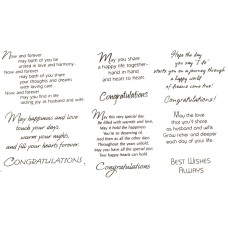 Now and forever
may both of you be
united in love and harmony..
Now and forever
may both of you share
your thoughts and dreams
with loving care
Now and forever
may you find in life
lasting joy as husband and wife.
May you share
a happy life together-
hand in hand
and heart to heart.
Congratulations
Hope the day
you say "I do"
starts you on a journey through
a happy world
of dreams come true!
Congratulations!
May happiness and love
touch your days,
warm your nights,
and fill your hearts forever.
Congratulations,
May this very special day
Be filled with warmth and love,
May it hold the happiness
You're so deserving of
And then as all the other days
Throughout the years unfold,
May you have all the special joy
Two happy hearts can hold.
Congratulations
May the love
that you'll share
as husband and wife
Grow richer and deeper
each day of your life.
Best Wishes
Always